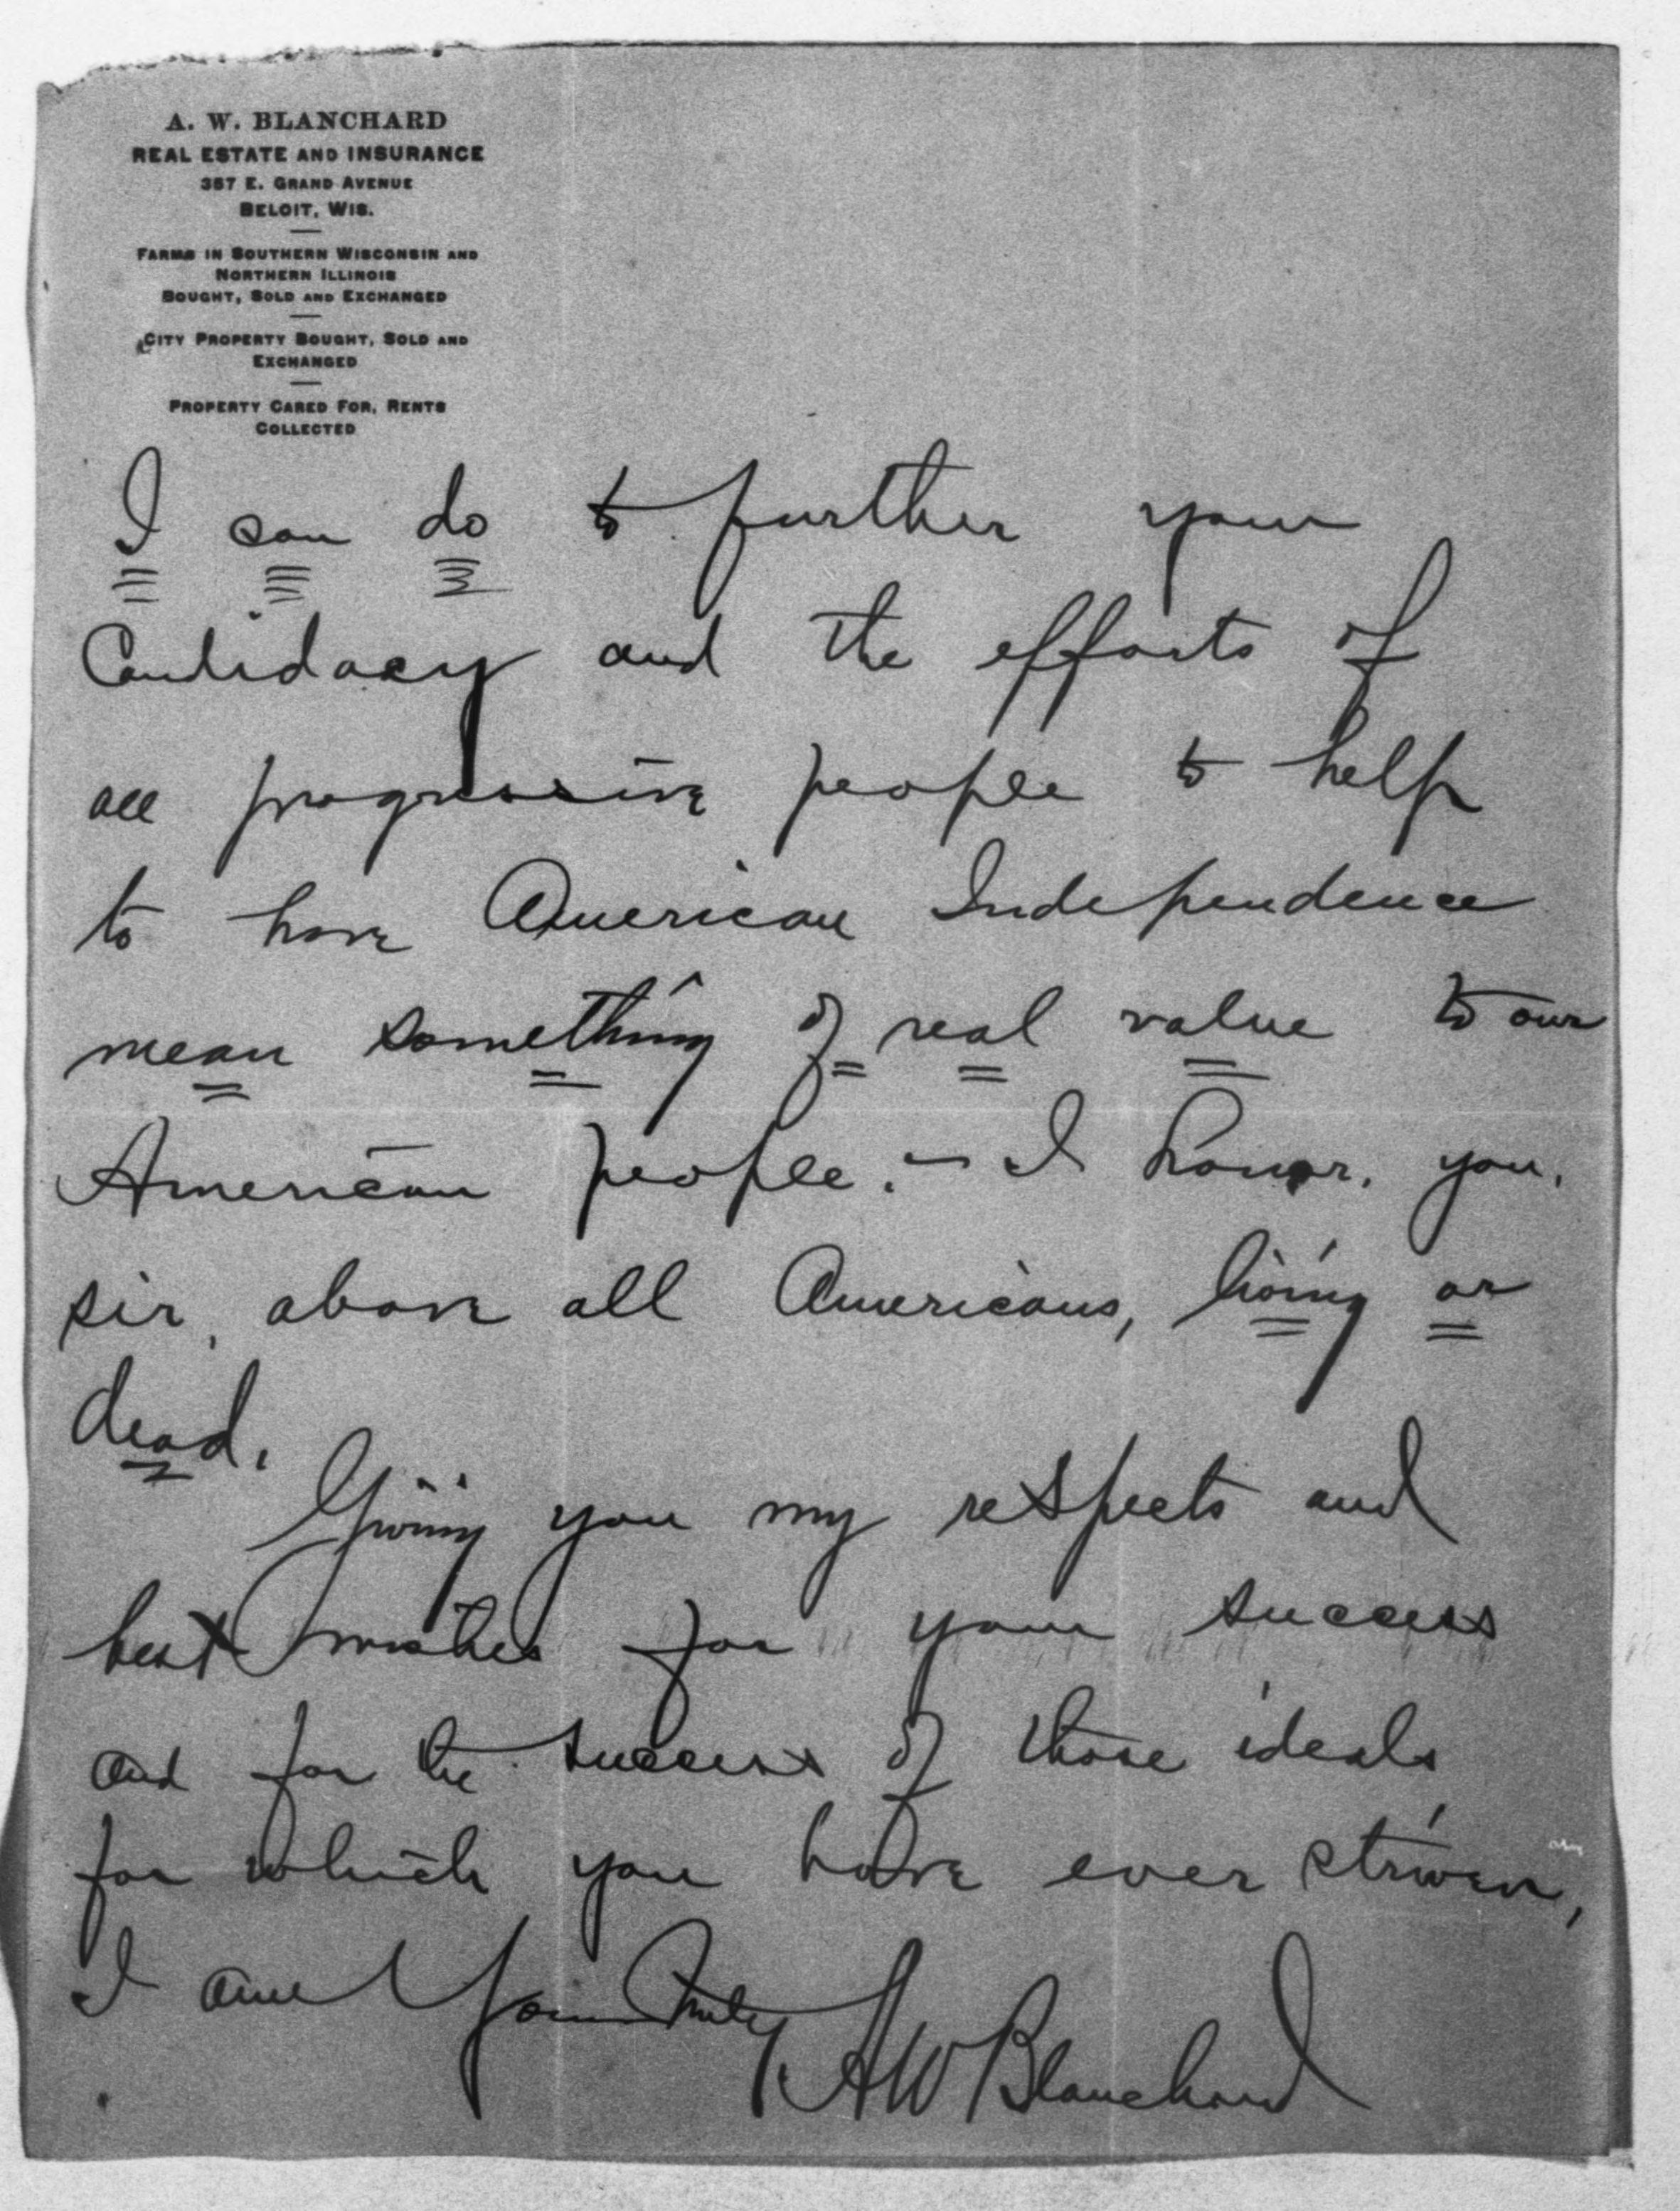 A. W. BLANCHARD
REAL ESTATE AND INSURANCE
357 E. GRAND AVENUE
BELOIT, WIS.
FARMS IN SOUTHERN WISCONSIN AND
NORTHERN ILLINOIS
BOUGHT, SOLD AND EXCHANGED
CITY PROPERTY BOUGHT, SOLD AND
EXCHANGED
PROPERTY CARED FOR, RENTS
COLLECTED
I can do to further your
Candidacy and the efforts of
all progressive people to help
to have American Independence
mean something of real value to our
American people. – I honor, you,
sir, above all Americans, living or
dead.
Giving you my respects and
best wishes for your success
and for the success of those ideals
for which you have ever striven,
I am Yours Truly, A W Blanchard